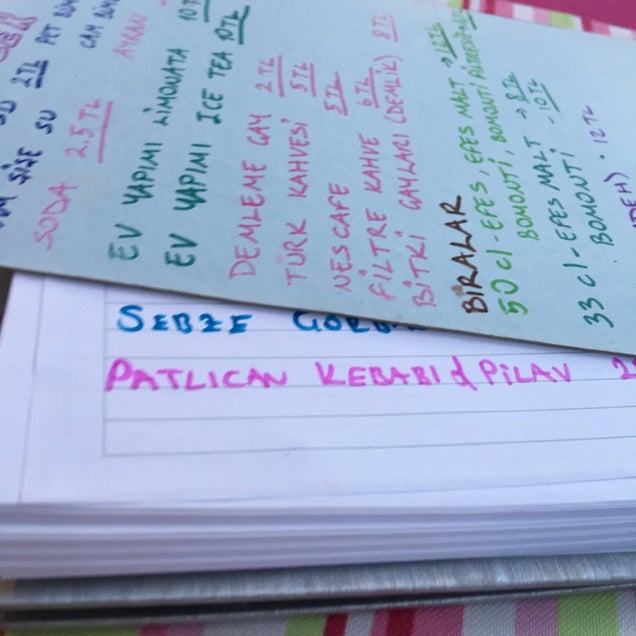 SU 2TL PET
CAM
ŞİŞE SU
AYRAN
SODA 2.5TL
EV YAPIMI LİMONATA 10TL
EV YAPIMI ICE TEA 10TL
DEMLEME ÇAY 2TL
TÜRK KAHVESİ 5TL
NESCAFE 5TL
FİLTRE KAHVE 6TL
BİTKİ ÇAYLARI (DEMLİK) 8TL
BİRALAR
50 cl - EFES, EFES MALT → 12TL
BOMONTİ, BOMONTİ
33 cl - EFES MALT → 8TL
BOMONTİ - 10TL
12TL
SEBZE
PATLICAN KEBABI & PİLAV